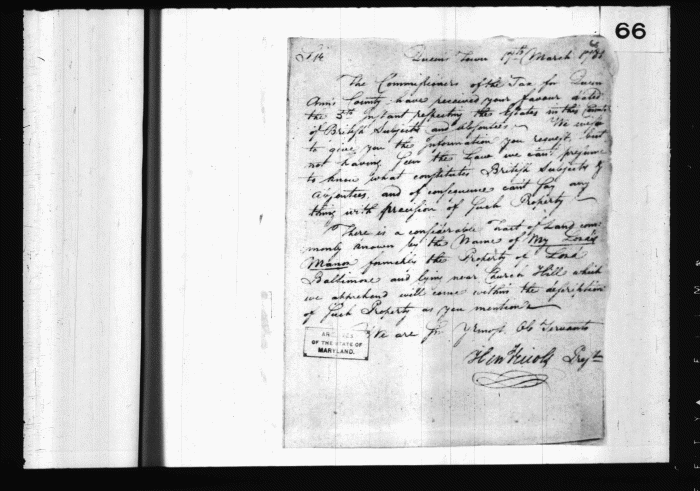 66
Sir Queen Town 17th March 1781
The Commissioners of the Tax for Queen
Anns County have received your favour dated
the 5th instant respecting the Estates in this County
of British Subjects and absentees We wish
to give you the Information you request, but
not having seen the Law we cant presume
to know what constitutes British Subjects &
absentees, and of consequence cant say any
thing with precision of such Property
There is a considerable Tract of Land com
monly known by the Name of My Lords
Manor formerly the Property of Lord
Baltimore and lying near Church Hill which
we apprehend will come within the description
of such Property as you mention
We are Sr. Yr most Ob Servants
ARCHIVES
OF THE STATE OF
MARYLAND.